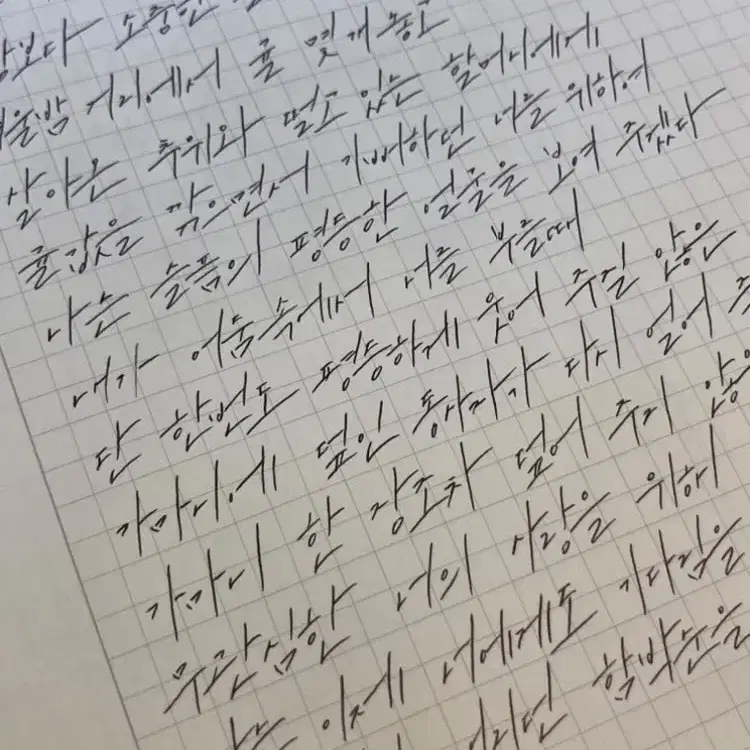 보다 소중한
겨울밤 거리에서 귤 몇개 놓고
살아온 추위와 떨고 있는 할머니에게
귤값을 깎으면서 기뻐하던 너를 위하여
나는 슬픔의 평등한 얼굴을 보여 주겠다
내가 어둠속에서 너를 부를때
단 한번도 평등하게 웃어 주질 않은
가마니에 덮인 동사자가 다시 얼어
가마니 한 장조차 덮어 주지
무관심한 너의 사랑을 위해
이제 너에게도 기다림을
함박눈을